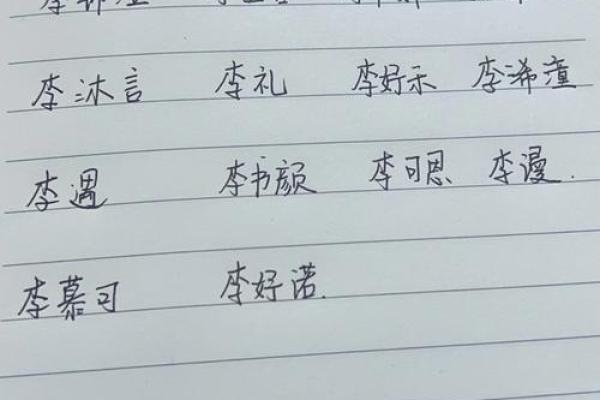 李沐言 李礼 李好禾 李浠潼
李遇 李书颜 李可恩 李漫.
李慕可 李妤诺.